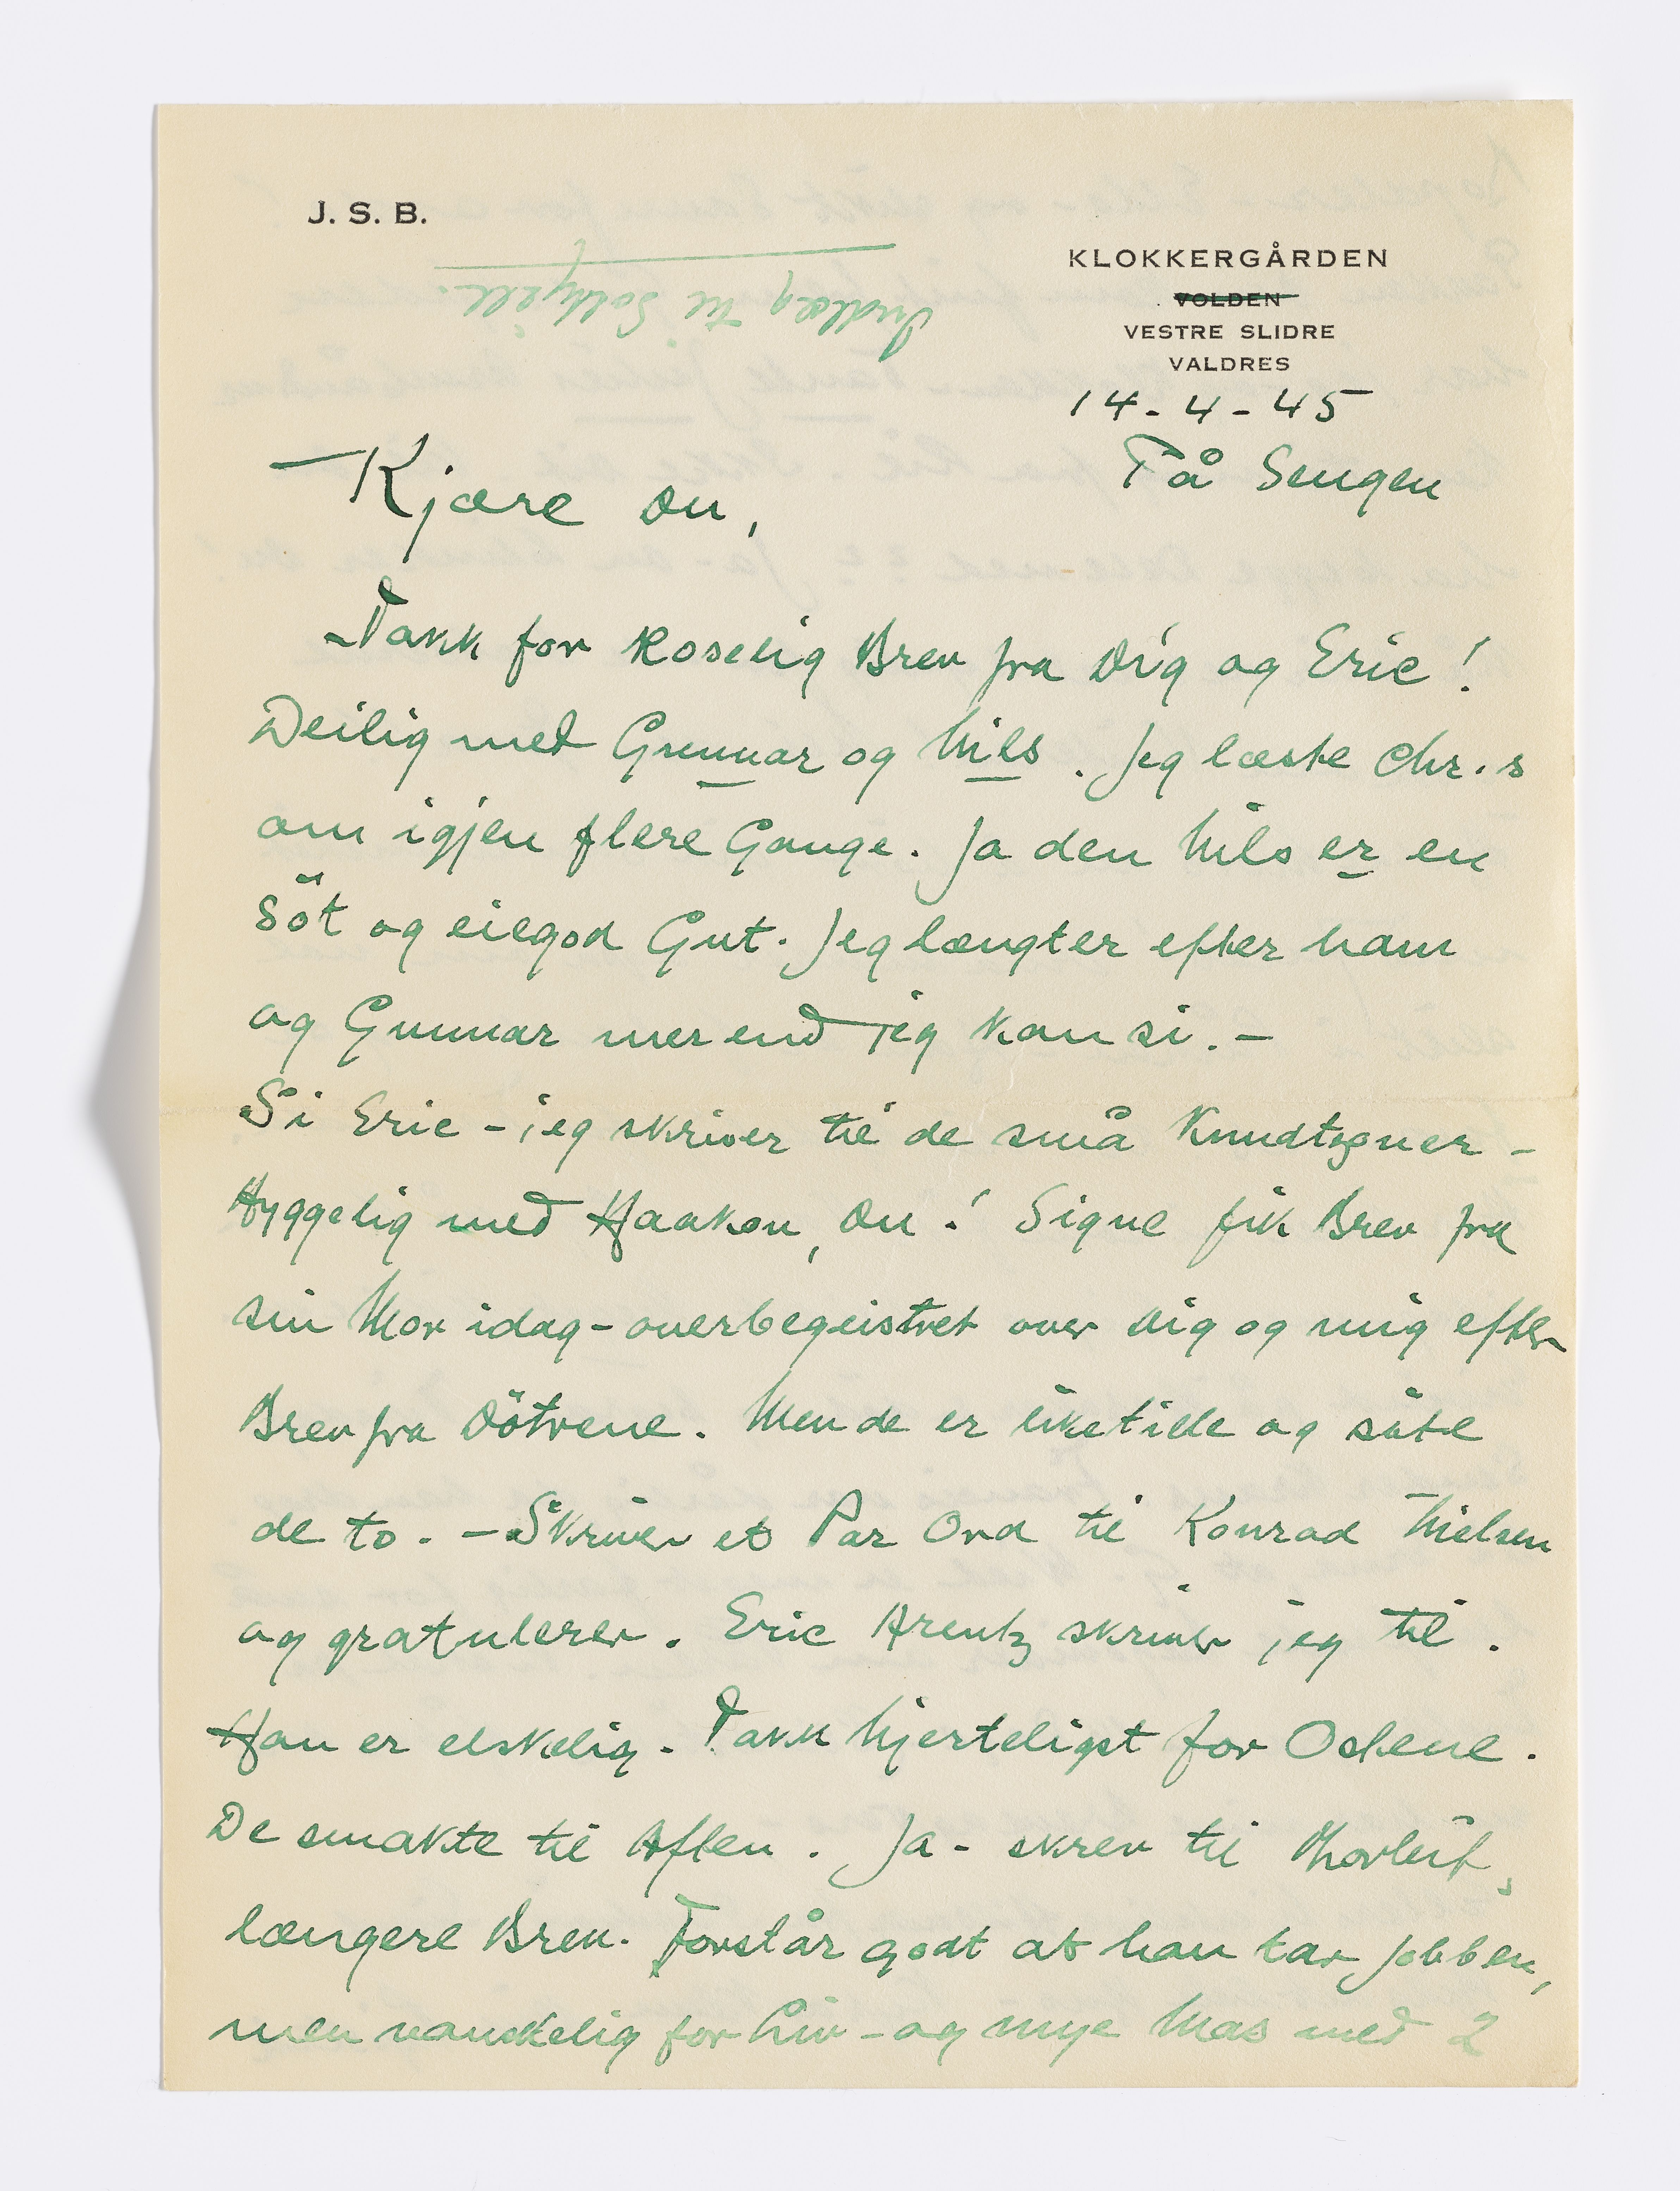 J. S. B.
KLOKKERGÅRDEN
VOLDEN
VESTRE SLIDRE
VALDRES
Indlæg til Solhjell.
14-4-45
På Sengen
Kjære Du,
Takk for koselig Brev fra Dig og Eric!
Deilig med Gunnar og Nils. Jeg læste Chr.s
om igjen flere Gange. Ja den Nils er en
söt og eiegod Gut. Jeg længter efter ham
og Gunnar mer end jeg kan si. –
Si Eric – jeg skriver til de små Knudtzoner –
Hyggelig med Haakon, Du! Signe fik Brev fra
sin Mor idag – overbegeistret over Dig og mig efter
Brev fra Dötrene. Men de er liketille og söte
de to. – Skriver et Par Ord til Konrad Nielsen
og gratulerer. Eric Arentz skriver jeg til.
Han er elskelig. Takk hjerteligst for Ostene.
De smakte til Aften. Ja – skrev til Thorleif,
længere Brev. Forstår godt at han tar Jobben,
men vanskelig for Liv – og mye Mas med 2